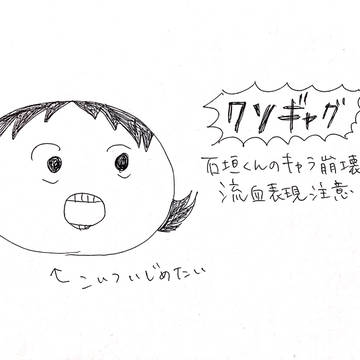 クソギャグ
石垣くんのキャラ崩壊
流血表現注意
↑こいついじめたい